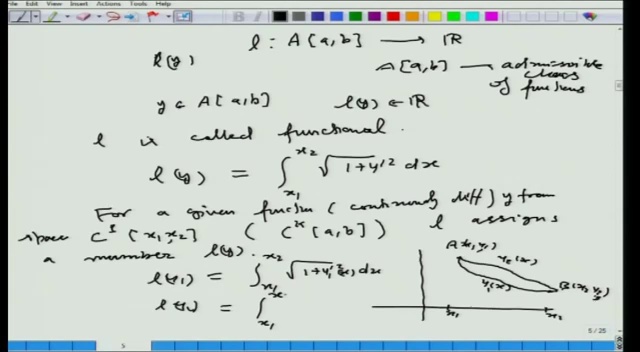 File Edit View Insert Actions Tools Help
l : A[a,b] → ℝ
l(y) A[a,b] — admissible class of functions
y ∈ A[a,b] l(y) ∈ ℝ
l is called functional.
l(y) = ∫_{x₁}^{x₂} √(1+y'²) dx
For a given function (continuously diff) y from
space C¹[x₁,x₂] ( [a,b] ) l assigns
a number l(y).
l(y₁) = ∫_{x₁}^{x₂} √(1+y₁'²(x)) dx
l(y₂) = ∫_{x₁}
A(x₁,y₁)
y₂(x)
y₁(x)
B(x₂,y₂)
x₁ x₂
5
5 / 25